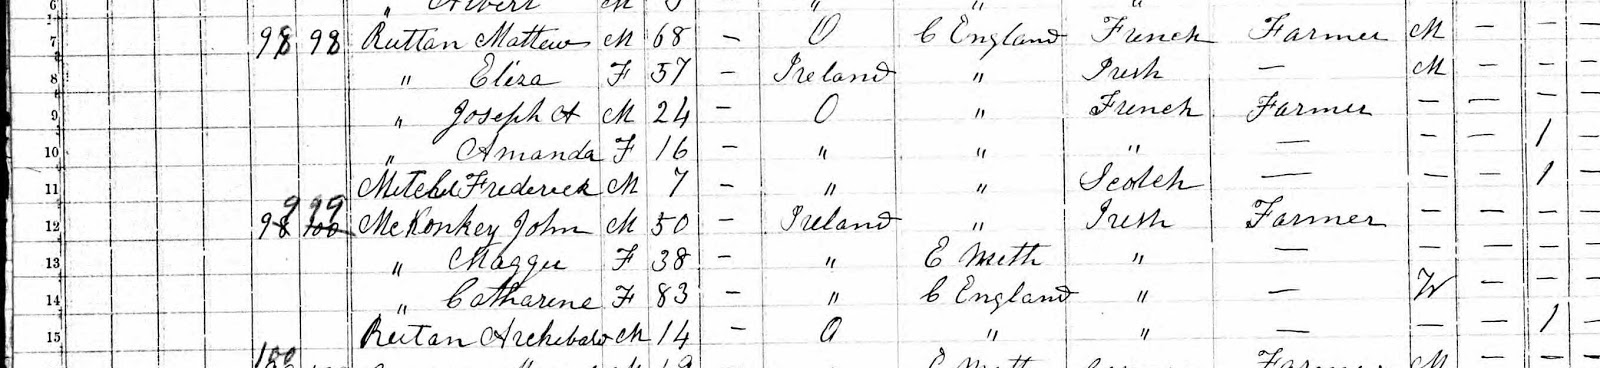 6 " Albert M " "
7 98 98 Ruttan Mathew M 68 – O C England French Farmer M – – –
8 " Eliza F 57 – Ireland " Irish — M – – –
9 " Joseph A M 24 – O " French Farmer – – – –
10 " Amanda F 16 – " " " — – – 1 –
11 Mitchel Frederick M 7 – " " Scotch — – – 1 –
12 99 99 98 100 McKonkey John M 50 – Ireland " Irish Farmer – – –
13 " Maggie F 38 – " E Meth " — – – – –
14 " Catharine F 83 – " C England " — W – – –
15 Rutan Archibald M 14 – O " " — – – 1 –
100 M 19 E Meth Farmer M – – –